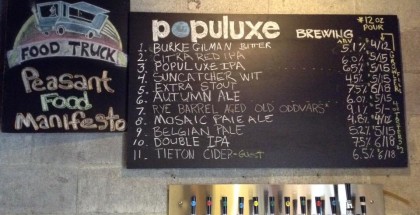 FOOD TRUCK
Peasant
Food
Manifesto
populuxe BREWING
#12 oz
POUR
ABV
1. BURKE GILMAN BITTER 5.1% 4/12
2. CITRA RED IPA 6.0% 5/15
3. POPULUXE IPA 6.5% 5/15
4. SUNCATCHER WIT 4.5% 5/15
5. EXTRA STOUT 7.5% 6/18
6. AUTUMN ALE 6.0% 5/15
7. RYE BARREL AGED OLD 9.1%
8. MOSAIC PALE ALE 4.8% 4/12
9. BELGIAN PALE 5.2% 5/15
10. DOUBLE IPA 7.5% 6/18
11. TIETON CIDER - GUEST 6.5% 6/18